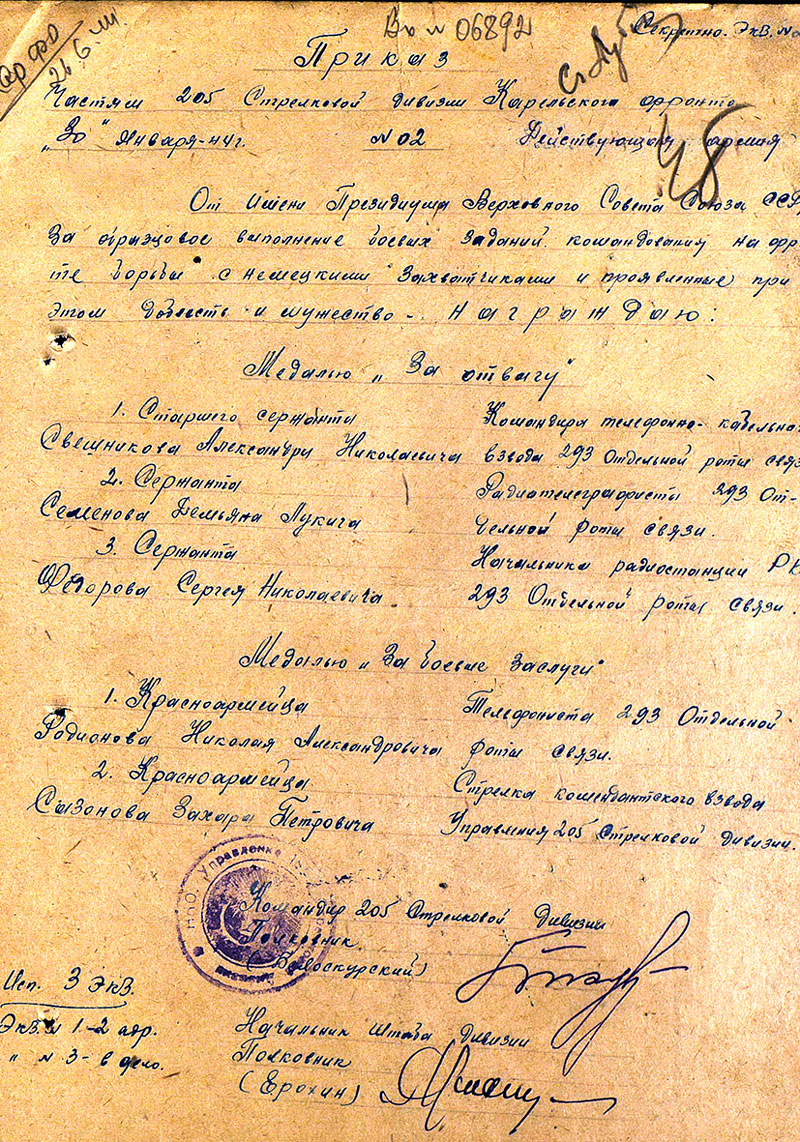 Вх № 06892
Секретно. Экз. №
26.6.
Приказ
Частям 205 Стрелковой дивизии Карельского фронта
„30" Января-44г. №02 Действующая армия
48
От имени Президиума Верховного Совета Союза ССР
За образцовое выполнение боевых заданий командования на фрон
те борьбы с немецкими захватчиками и проявленные при
этом доблесть и мужество - Награждаю:
Медалью „За отвагу"
1. Старшего сержанта Командира телефонно-кабельно
Свешникова Александра Николаевича взвода 293 Отдельной роты связ
2. Сержанта Радиотелеграфисты 293 От-
Семенова Демьяна Лукича дельной роты связи.
3. Сержанта Начальника радиостанции
Федорова Сергея Николаевича 293 Отдельной роты связи.
Медалью „За боевые заслуги"
1. Красноармейца Телефониста 293 Отдельной
Родионова Николая Александровича роты связи.
2. Красноармейца Стрелка комендантского взвода
Сазонова Захара Петровича Управления 205 Стрелковой дивизии.
Н.К.О. Управление
Командир 205 Стрелковой дивизии
Полковник
(Белоскурский)
Исп. 3 экз.
Экз. № 1-2 адр.
„ № 3- в дело.
Начальник Штаба дивизии
Полковник
(Ерохин)